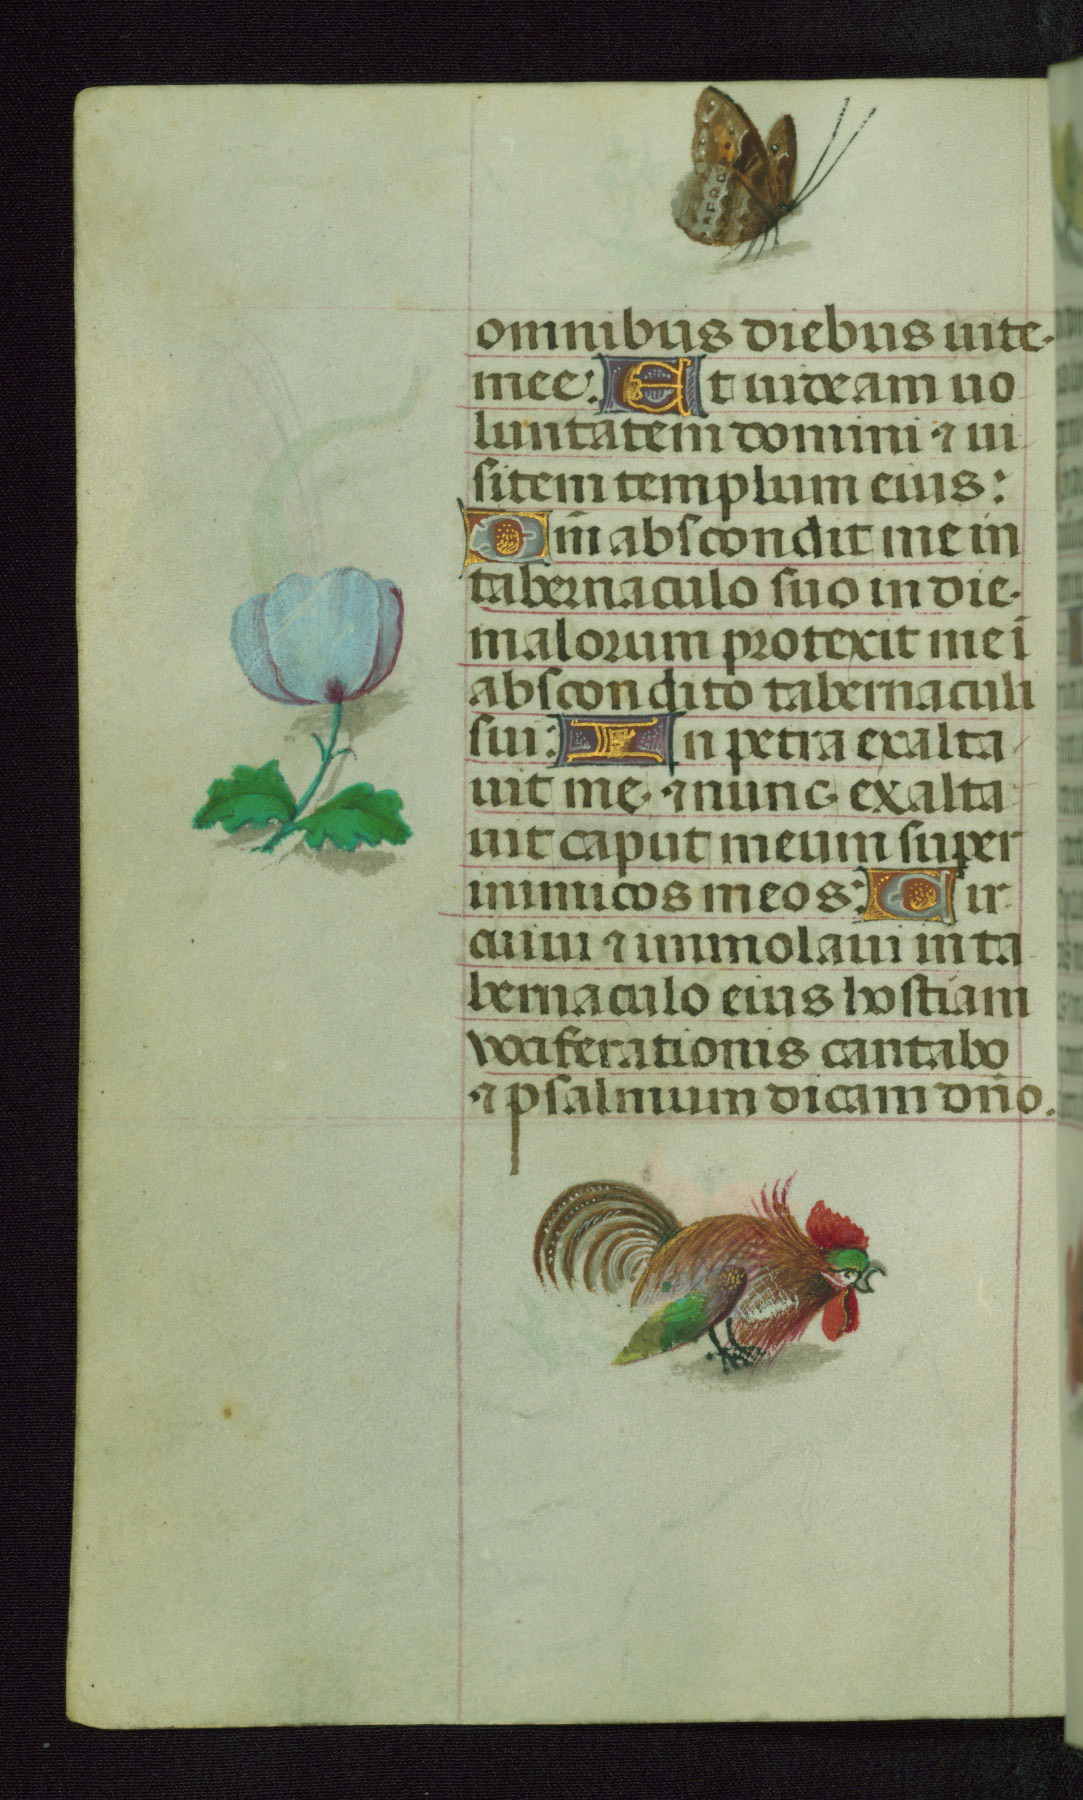 omnibus diebus uite
mee: Et uideam uo
luntatem domini ⁊ ui
sitem templum eius:
Qm̄ abscondit me in
tabernaculo suo in die
malorum protexit me ī
abscondito tabernaculi
sui: In petra exalta
uit me, ⁊ nunc exalta
uit caput meum super
inimicos meos: Cir
cuiui ⁊ immolaui in ta
bernaculo eius hostiam
vociferationis cantabo
⁊ psalmum dicam dn̄o.